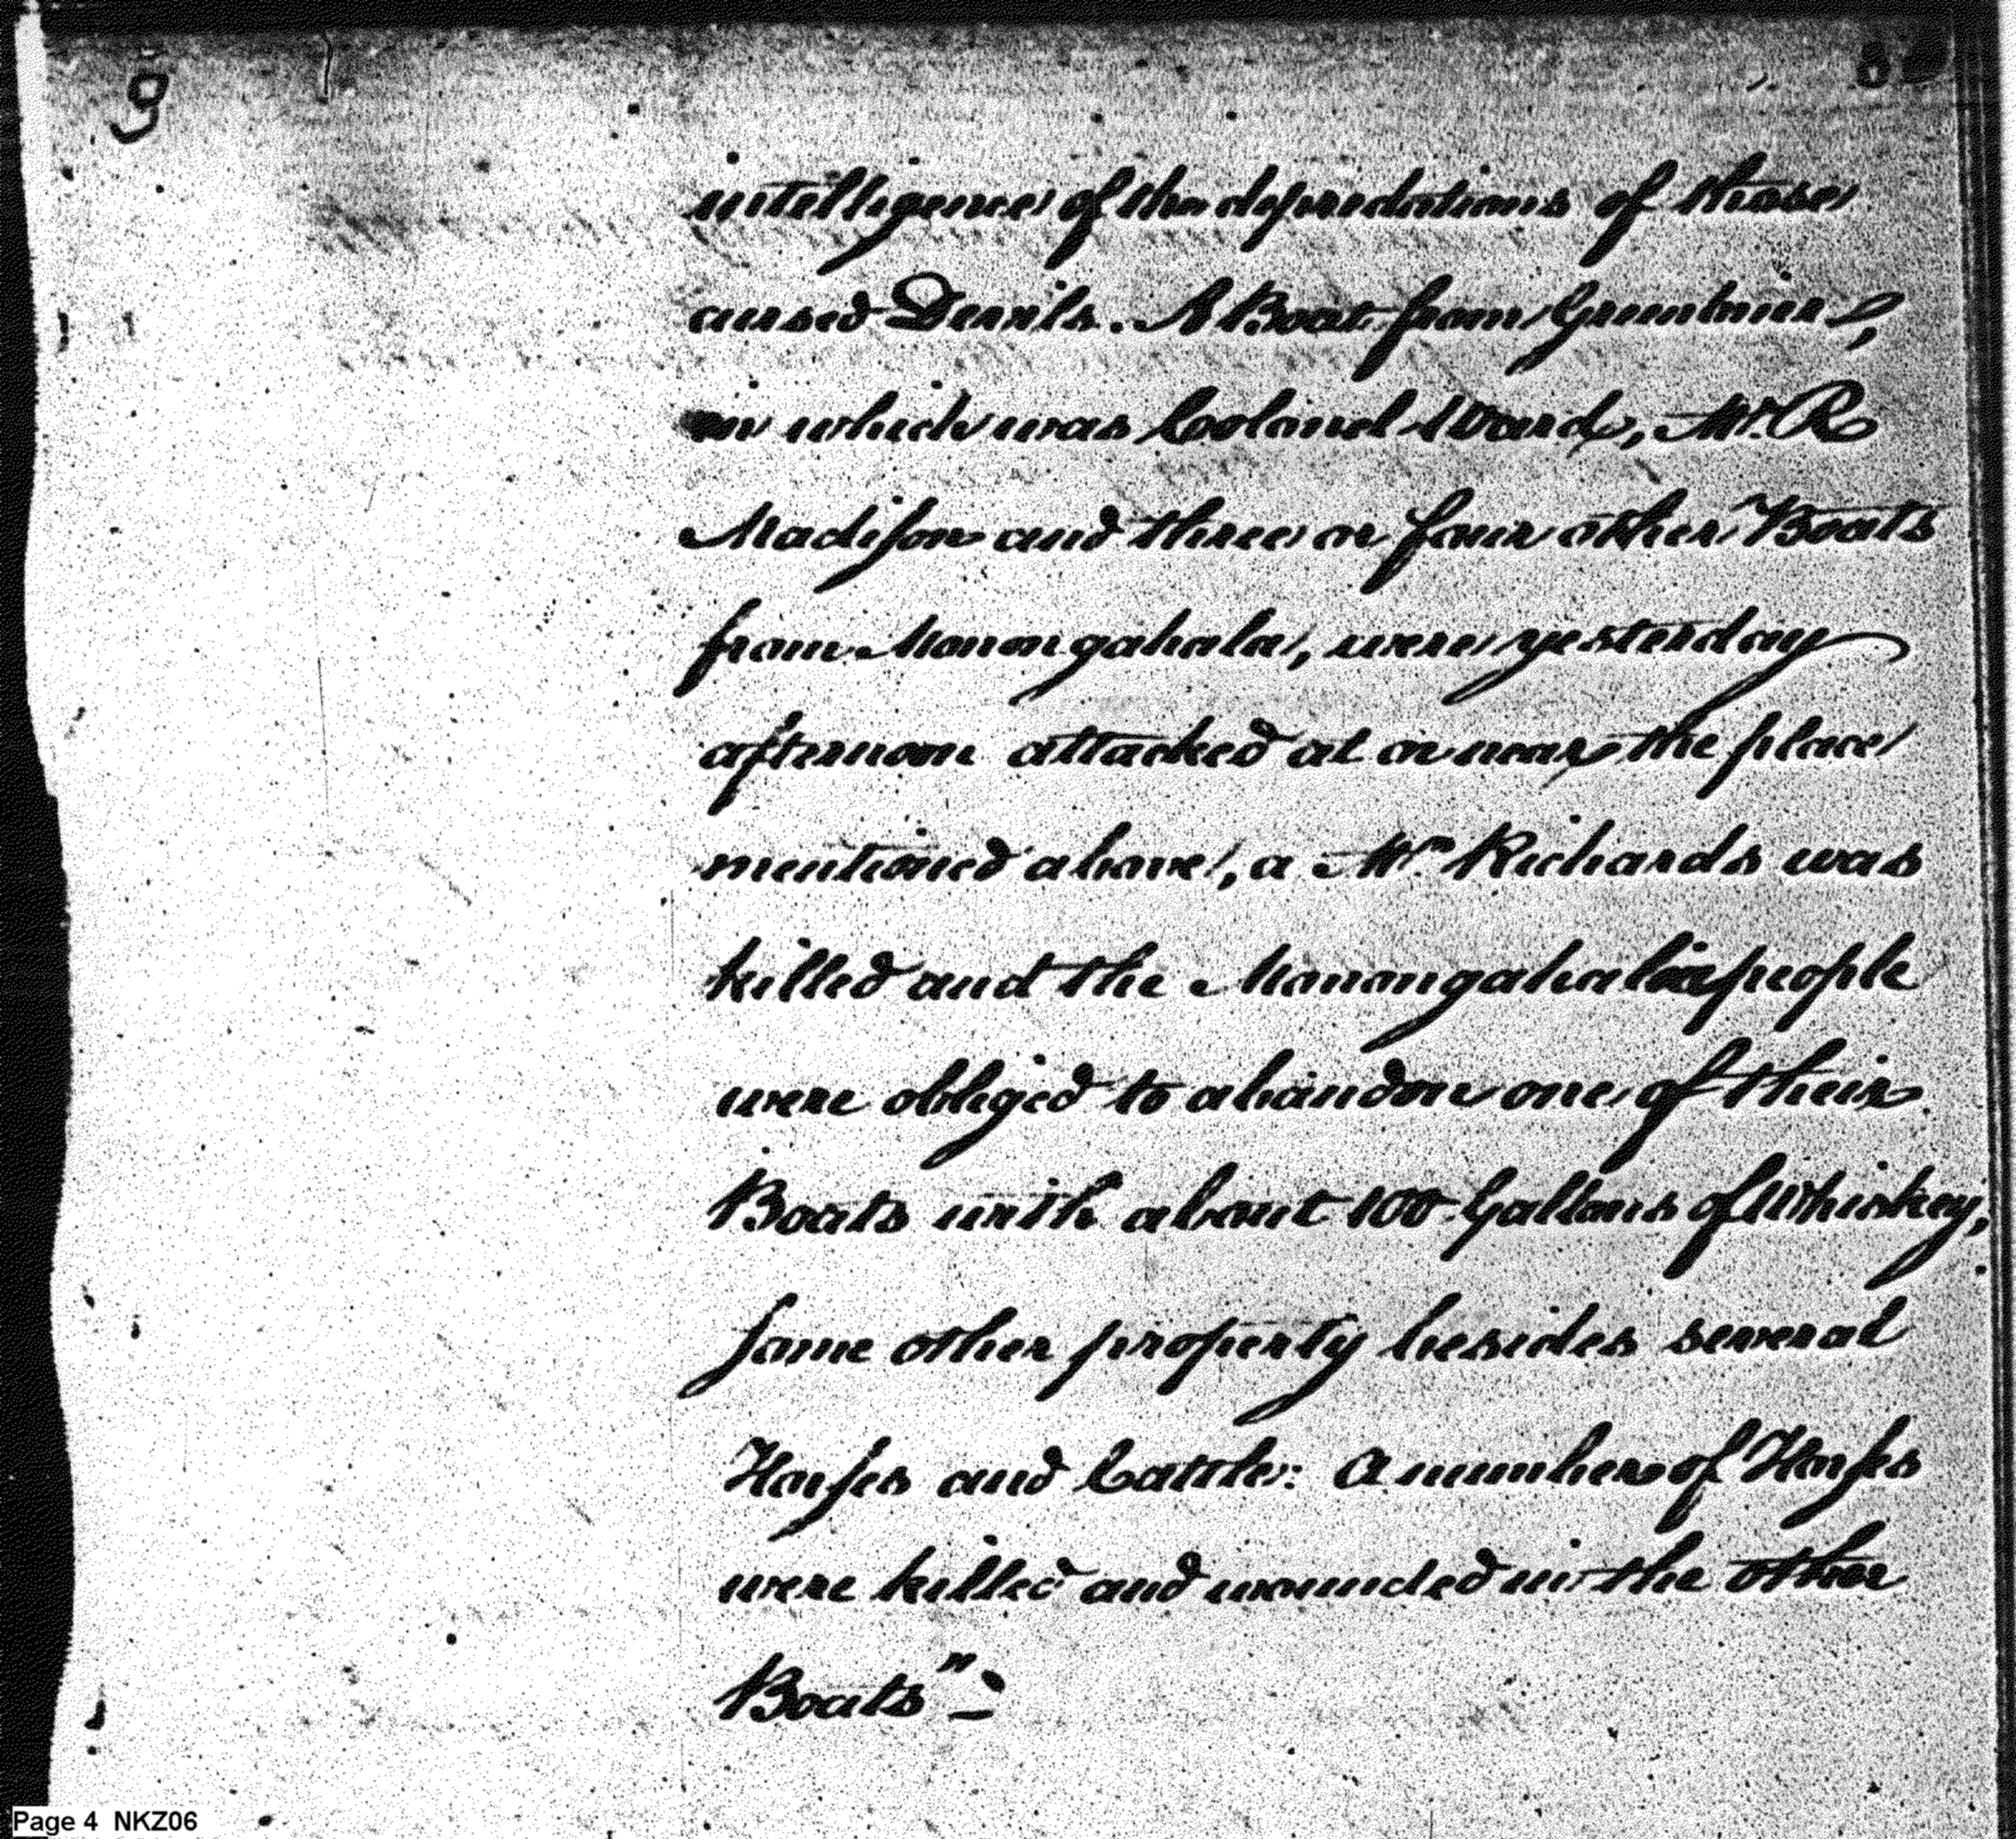 intelligence of the depredations of those
cursed Devils. A Boat from Greenbrier,
in which was Coolonel Ward, Mr. R
Madison and three or four other Boats
from Monongahala, were yesterday
afternoon attacked at or near the place
mentioned above, a Mr. Richards was
killed and the Monongahala people
were obliged to abandon one of their
Boats with about 100 Gallons of Whiskey,
some other property besides several
Horses and Cattle: A number of Horses
were killed and wounded in the other
Boats"
Page 4 NKZ06